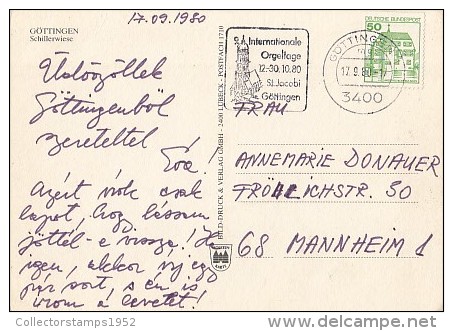 17.09.1980
GÖTTINGEN
Schillerwiese
Üdvözöllek
Göttingenből
szeretettel
Éva!
Azért írok csak
lapot, hogy lássam
jöttél-e vissza! Ha
igen, akkor írj egy
pár sort, s én is
írom a levelet!
BILD-DRUCK & VERLAG GMBH · 2400 LÜBECK · POSTFACH 1710
Internationale
Orgeltage
12.-30.10.80
St. Jacobi
Göttingen
GÖTTINGEN
17.9.80-17
3400
DEUTSCHE BUNDESPOST
50
FRAU
ANNEMARIE DONAUER
FRÖHLICHSTR. 50
68 MANNHEIM 1
Collectorstamps1952
delcampe.net